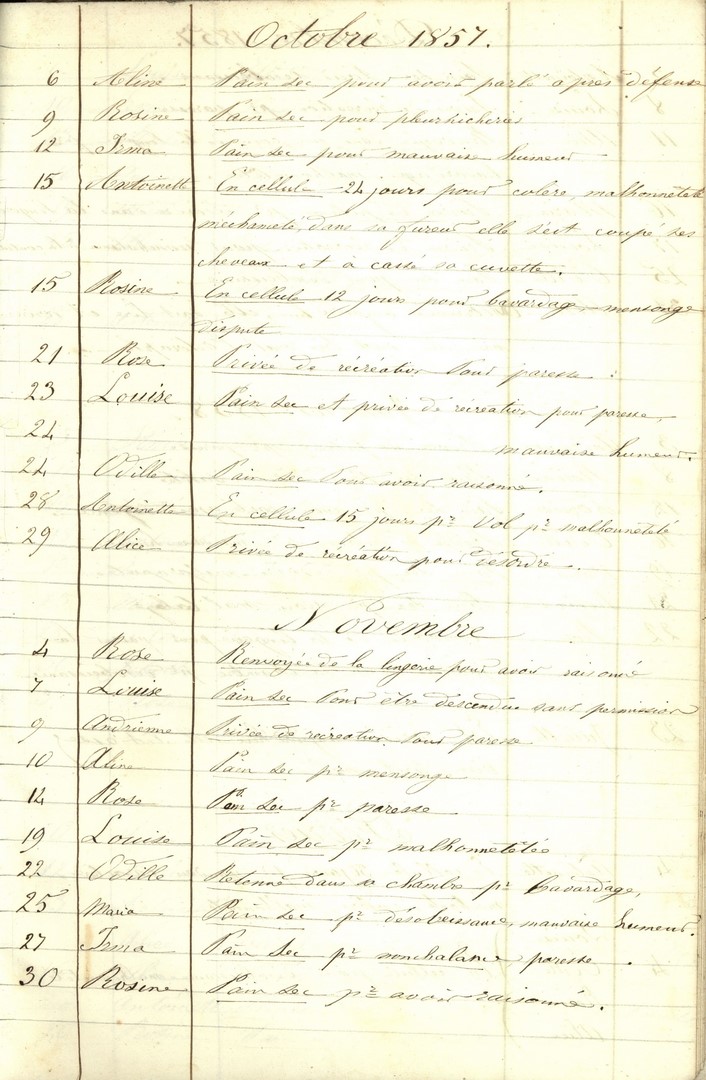 Octobre 1857.
6 Aline Pain sec pour avoir parlé après défense
9 Rosine Pain sec pour pleurnicheries
12 Irma Pain sec pour mauvaise humeur
15 Antoinette En cellule 24 jours pour colère, malhonnêteté
méchameté, dans sa fureur elle s'est coupé ses
cheveaux et à cassé sa cuvette.
15 Rosine En cellule 12 jours pour bavardage, mensonge
dispute
21 Rose Privée de récréation pour paresse :
23 Louise Pain sec et privée de récréation pour paresse,
24 mauvaise humeur.
24 Odille Pain sec pour avoir raisonné.
28 Antoinette En cellule 15 jours pr vol pr malhonnêteté
29 Alice Privée de récréation pour désordre.
Novembre
4 Rose Renvoyée de la lingerie pour avoir raisonné
7 Louise Pain sec pour être descendue sans permission
9 Andrienne Privée de récréation pour paresse
10 Aline Pain sec pr mensonge
14 Rose Pain sec pr paresse
19 Louise Pain sec pr malhonnêtetée
22 Odille Retenue dans sa chambre pr bavardage,
25 Maria Pain sec pr désobeissance, mauvaise humeur.
27 Irma Pain sec pr nonchalance, paresse.
30 Rosine Pain sec pr avoir raisonné.